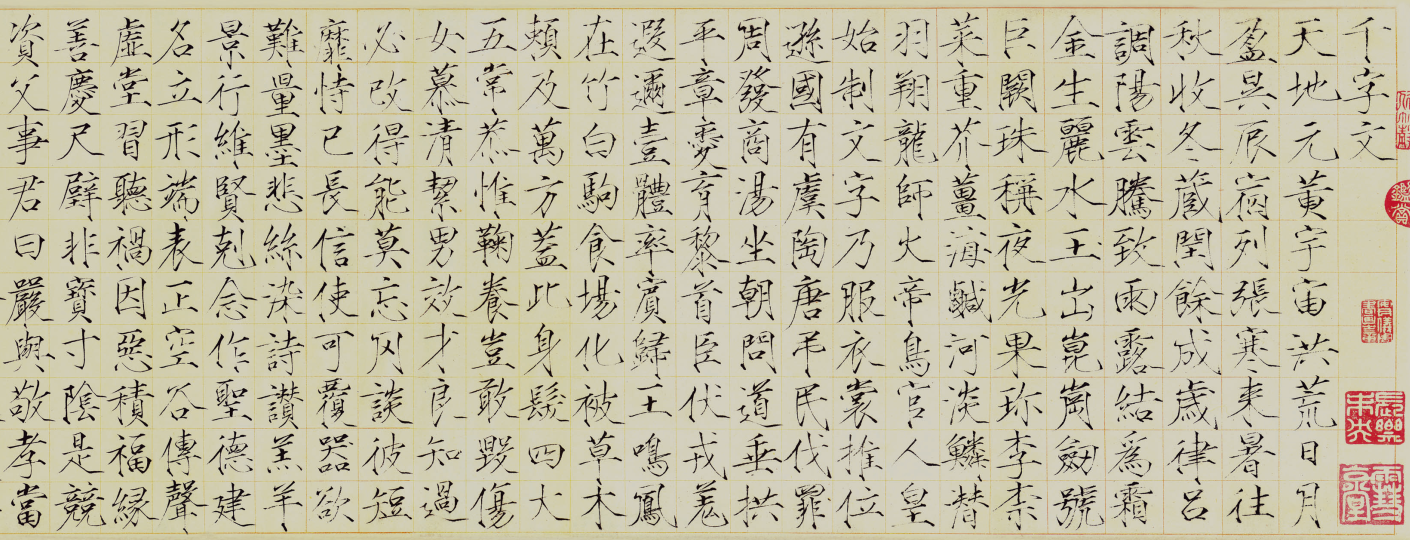 千字文
天地元黃宇宙洪荒日月
盈昃辰宿列張寒来暑往
秋收冬蔵閏餘成歲律呂
調陽雲騰致雨露結為霜
金生麗水玉出崑崗劔號
巨闕珠稱夜光果珍李柰
菜重芥薑海鹹河淡鱗潛
羽翔龍師火帝鳥官人皇
始制文字乃服衣裳推位
遜國有虞陶唐弔民伐罪
周發商湯坐朝問道垂拱
平章愛育黎首臣伏戎羌
遐邇壹體率賓歸王鳴鳳
在竹白駒食場化被草木
頼及萬方蓋此身髮四大
五常恭惟鞠養豈敢毀傷
女慕清絜男效才良知過
必改得能莫忘罔談彼短
靡恃已長信使可覆器欲
難量墨悲絲染詩讃羔羊
景行維賢剋念作聖德建
名立形端表正空谷傳聲
虛堂習聽禍因惡積福緣
善慶尺璧非寶寸陰是競
資父事君曰嚴與敬孝當
鑑賞
長樂未央